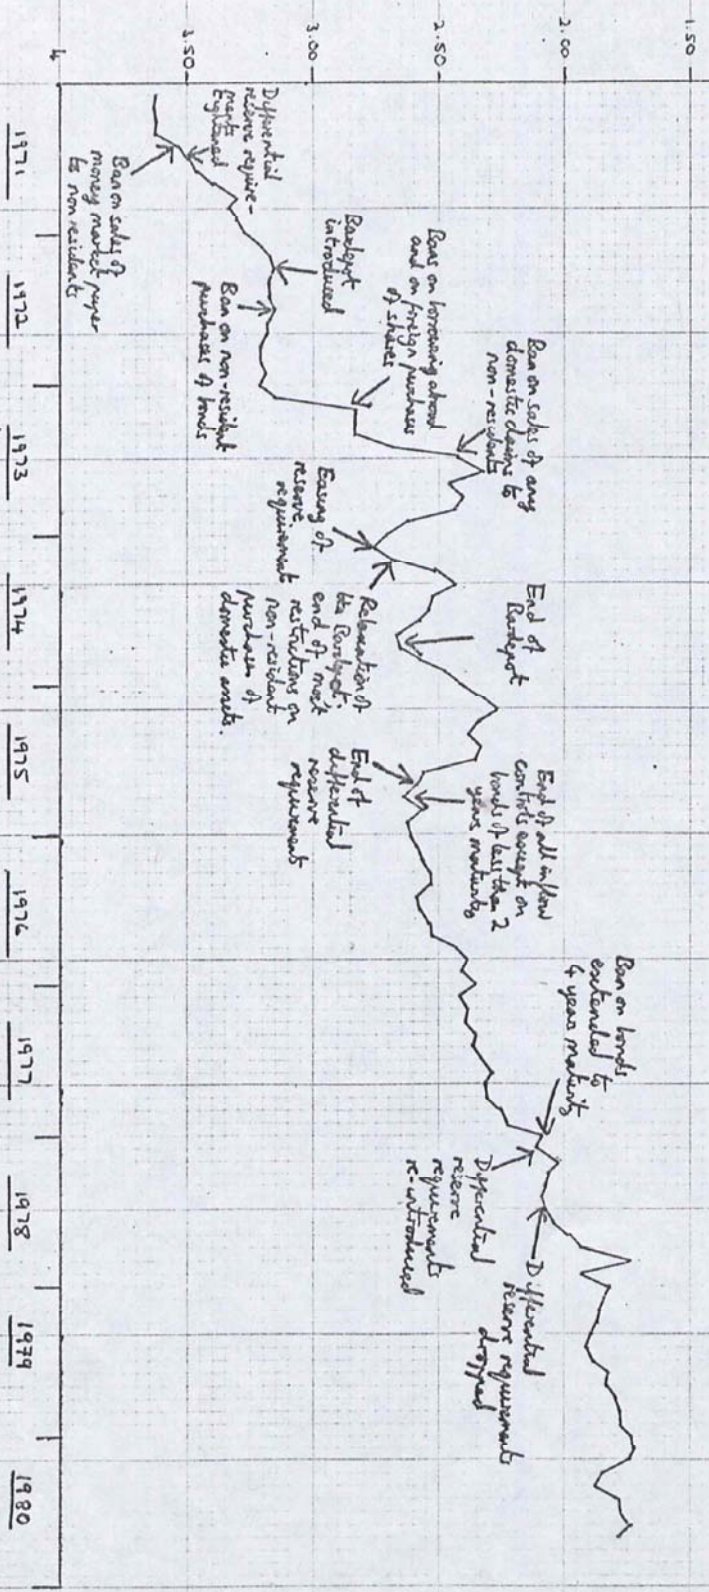 1.50
2.00
2.50
3.00
3.50
4
Differential
reserve require-
ments
tightened
Ban on sales of
money market paper
to non residents
Bardepot
introduced
Ban on non-resident
purchases of bonds
Bans on borrowing abroad
and on foreign purchases
of shares
Ban on sales of any
domestic claims to
non-residents
Easing of
reserve
requirement
Relaxation of
the Bardepot;
end of most
restrictions on
non-resident
purchases of
domestic assets.
End of
Bardepot
End of
differential
reserve
requirement
End of all inflow
controls except on
bonds of less than 2
years maturity
Ban on bonds
extended to
4 years maturity
Differential
reserve
requirements
re-introduced
Differential
reserve requirements
dropped
1971
1972
1973
1974
1975
1976
1977
1978
1979
1980